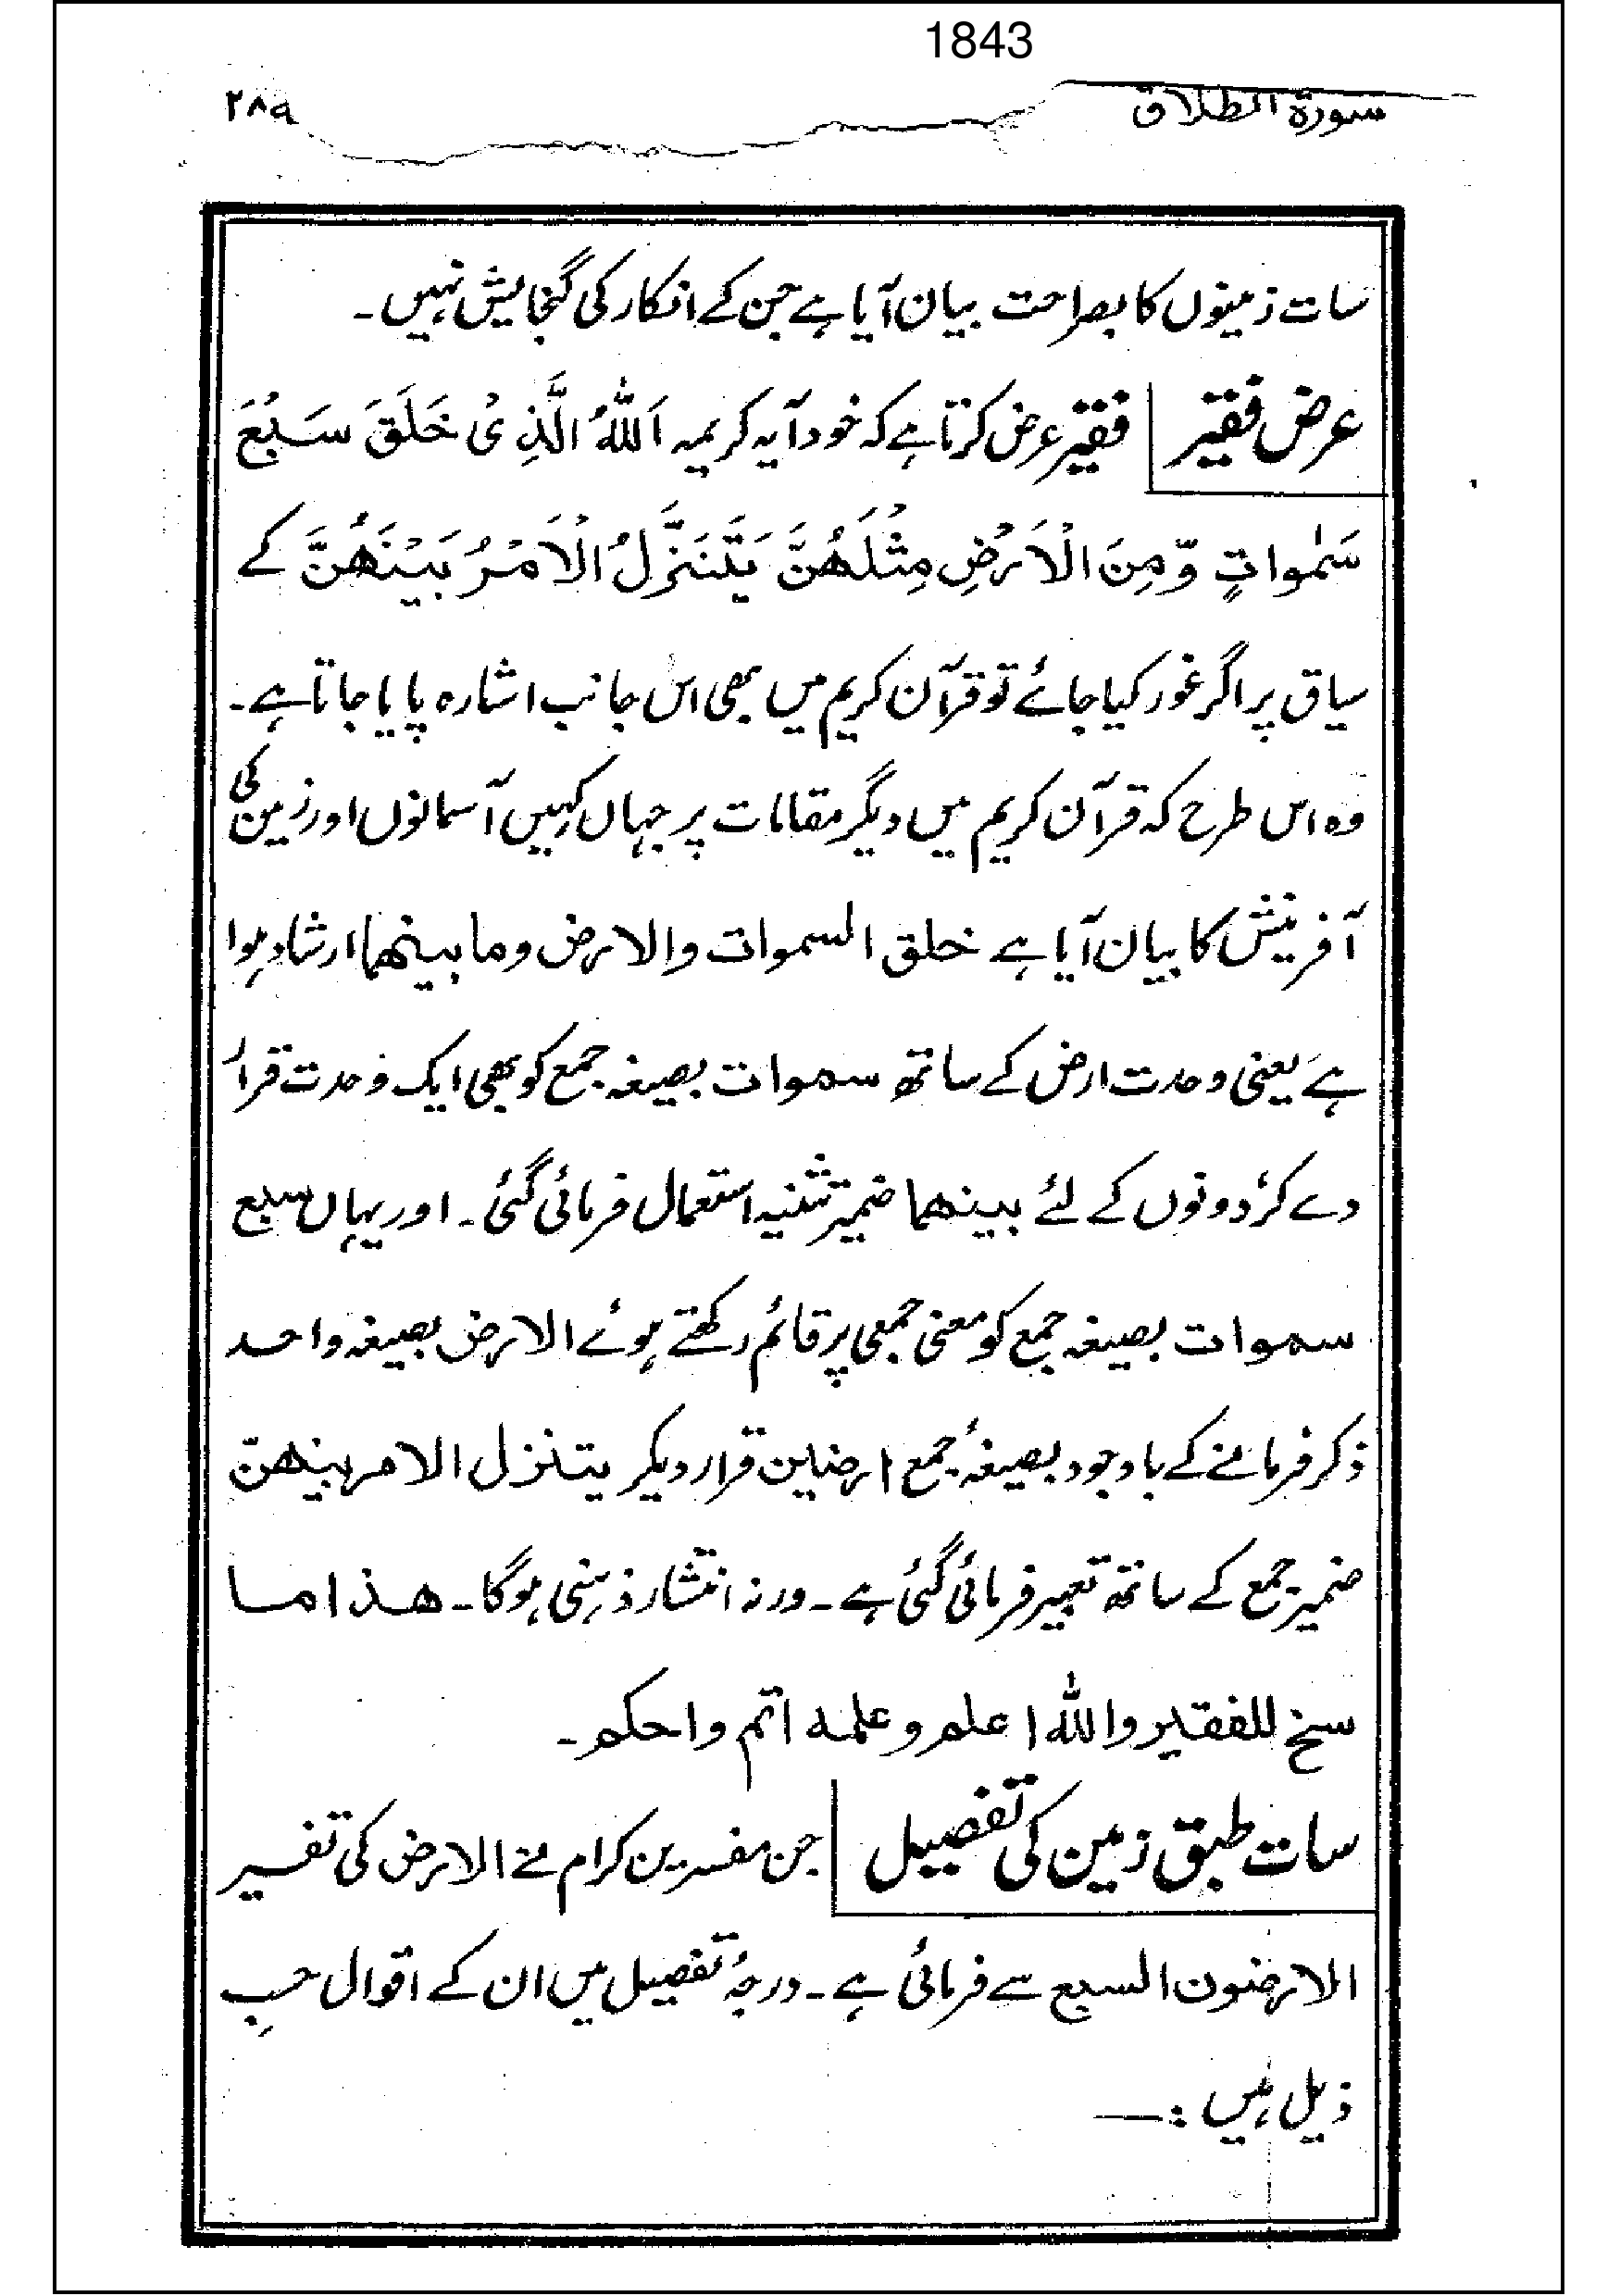 1843
سورۃ الطلاق
۲۸۹
سات زمینوں کا بصراحت بیان آیا ہے جن کے انکار کی گنجایش نہیں۔
عرض فقیر فقیر عرض کرتا ہے کہ خود آیہ کریمہ اَللّٰهُ الَّذِیْ خَلَقَ سَبْعَ
سَمٰواتٍ وَّمِنَ الْاَرْضِ مِثْلَهُنَّ یَتَنَزَّلُ الْاَمْرُ بَیْنَهُنَّ کے
سیاق پر اگر غور کیا جائے تو قرآن کریم میں بھی اس جانب اشارہ پایا جاتا ہے۔
وہ اس طرح کہ قرآن کریم میں دیگر مقامات پر جہاں کہیں آسمانوں اور زمین کی
آفرینش کا بیان آیا ہے خلق السموات والارض وما بینهما ارشاد ہوا
ہے یعنی وحدت ارض کے ساتھ سموات بصیغہ جمع کو بھی ایک وحدت قرار
دے کر دونوں کے لئے بینهما ضمیر تثنیہ استعمال فرمائی گئی۔ اور یہاں سبع
سموات بصیغہ جمع کو معنی جمعی پر قائم رکھتے ہوئے الارض بصیغہ واحد
ذکر فرمانے کے باوجود بصیغۂ جمع ارضین قرار دیکر یتنزل الامر بینهنّ
ضمیر جمع کے ساتھ تعبیر فرمائی گئی ہے۔ ورنہ انتشار ذہنی ہوگا۔ هذا ما
سخ للفقیر واللّٰه اعلم وعلمه اتم واحکم۔
سات طبق زمین کی تفصیل جن مفسرین کرام نے الارض کی تفسیر
الارضون السبع سے فرمائی ہے۔ درجۂ تفصیل میں ان کے اقوال حسبِ
ذیل ہیں :—